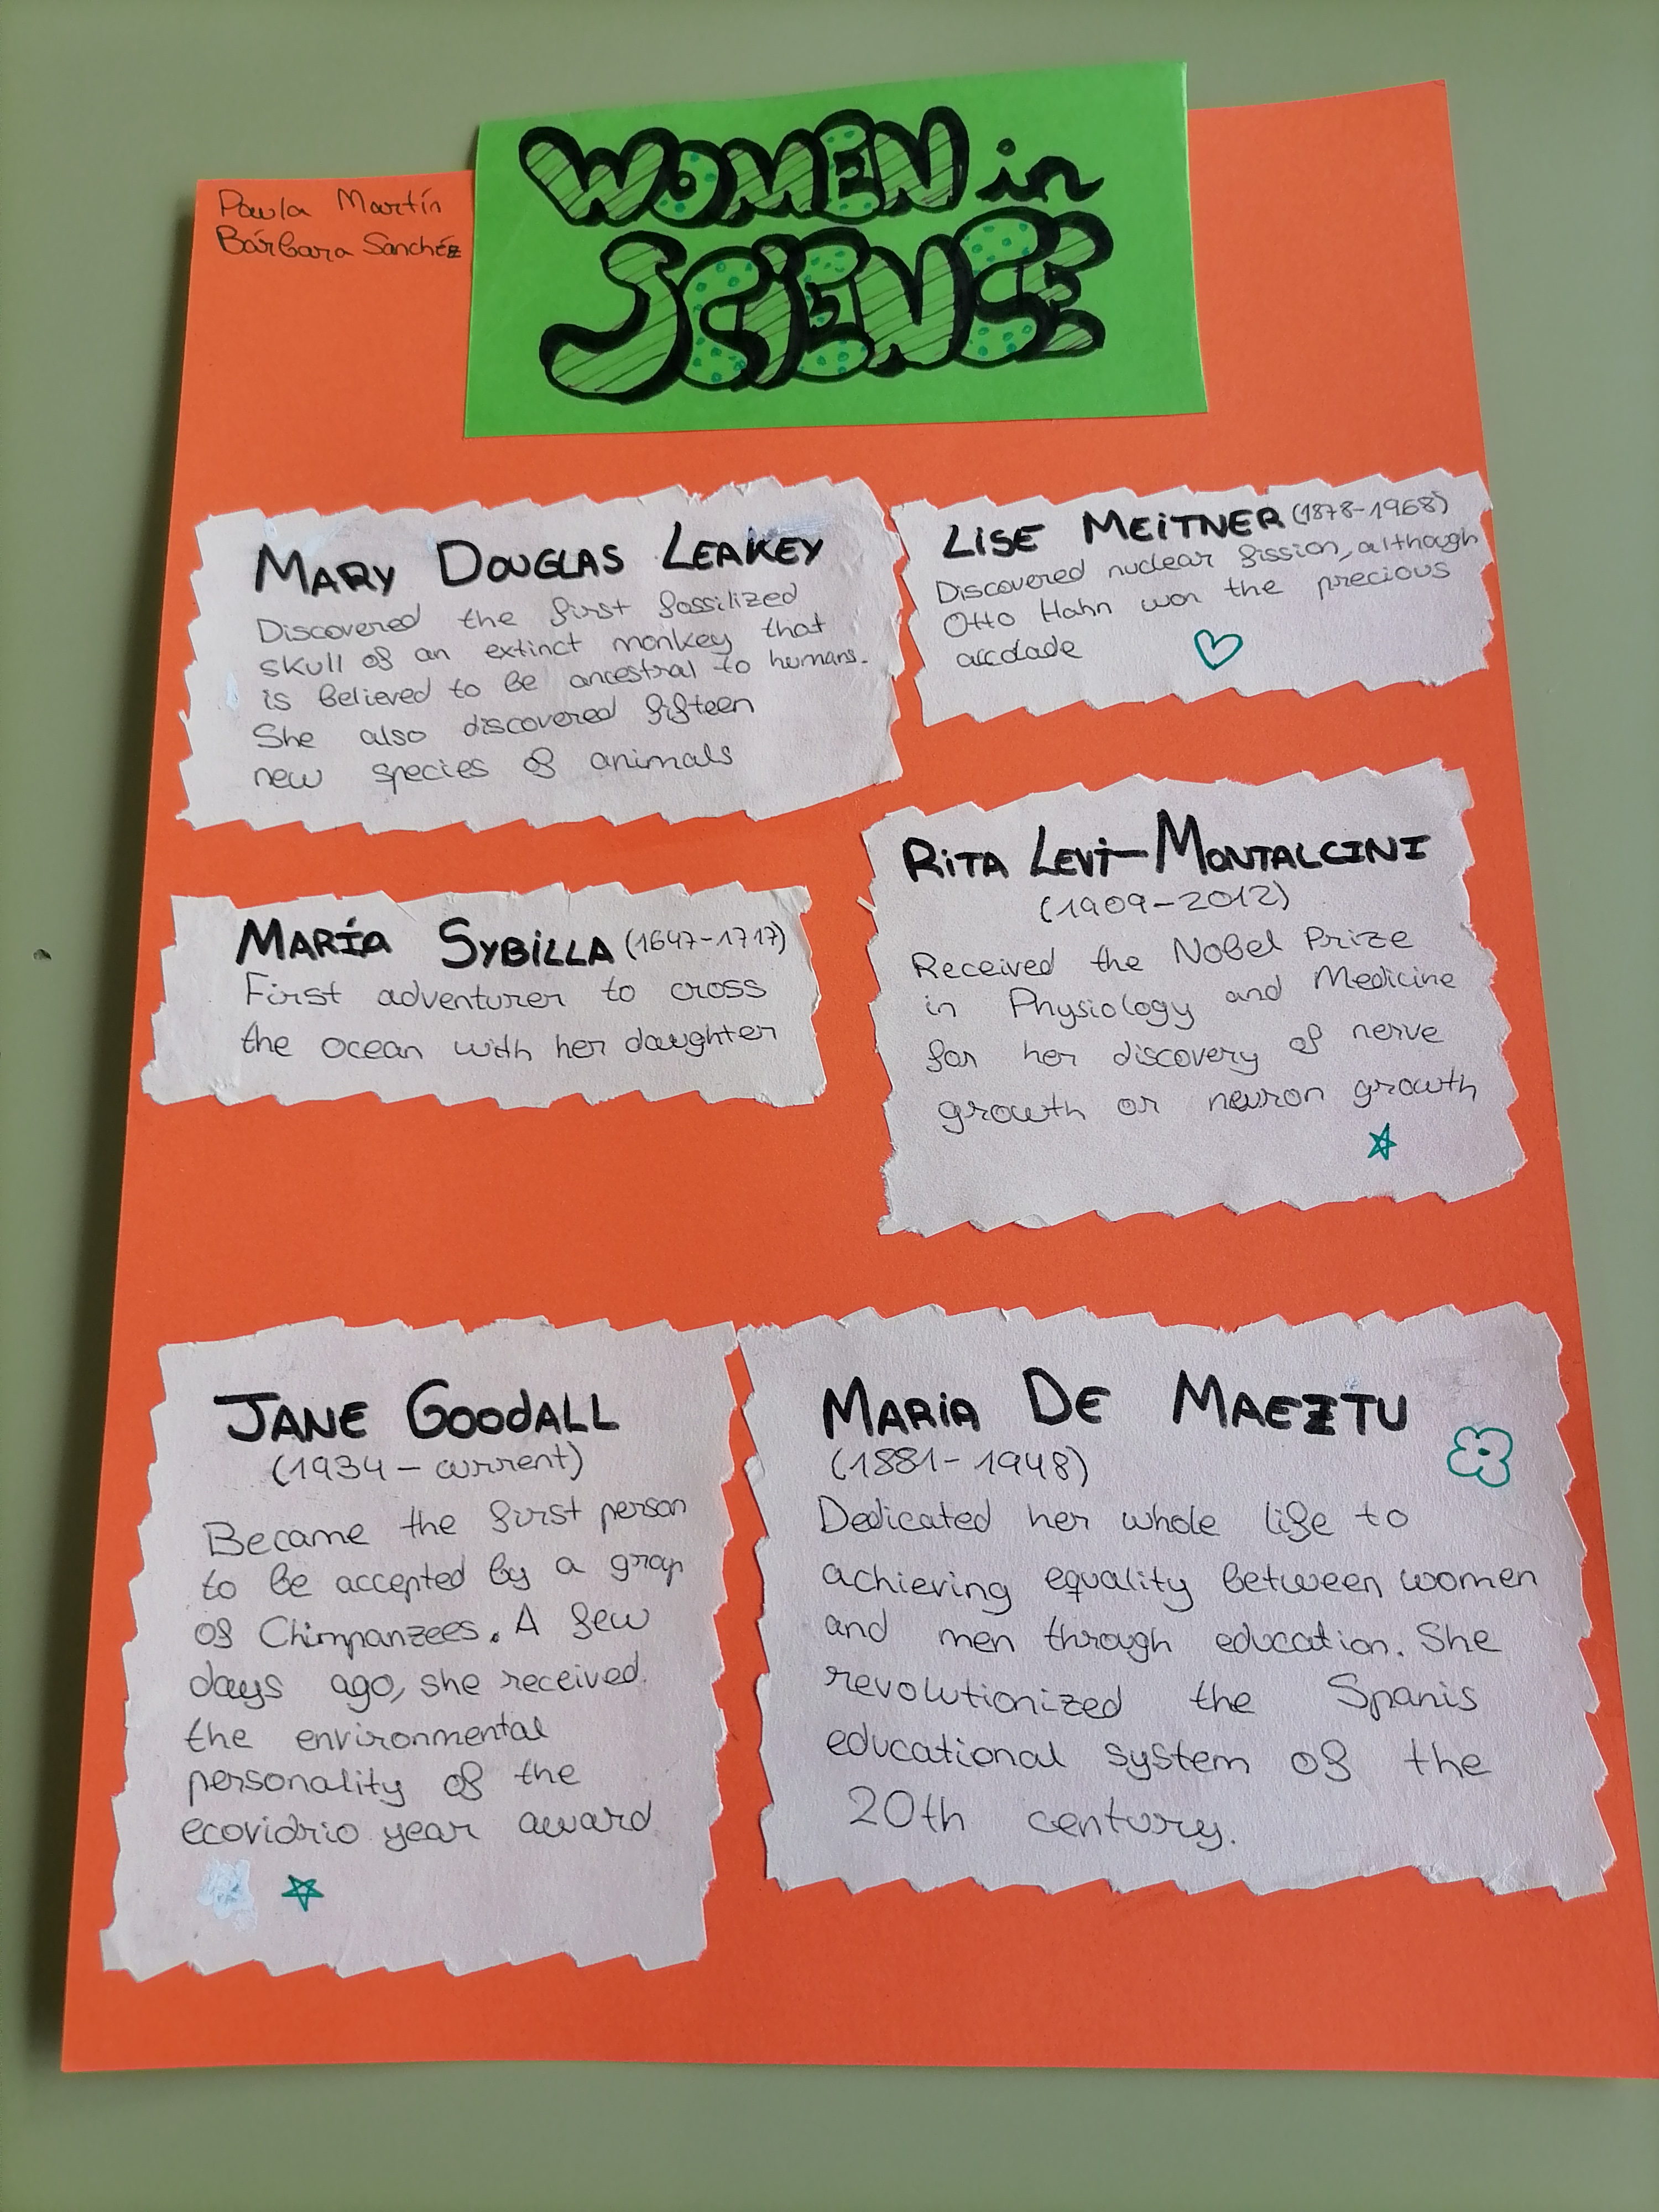 Paula Martín
Bárbara Sanchéz
WOMEN in
SCIENCE
MARY DOUGLAS LEAKEY
Discovered the first fossilized
skull of an extinct monkey that
is believed to be ancestral to humans.
She also discovered fifteen
new species of animals
LISE MEITNER (1878-1968)
Discovered nuclear fission, although
Otto Hahn won the precious
accolade
MARÍA SYBILLA (1647-1717)
First adventurer to cross
the ocean with her daughter
RITA LEVI-MONTALCINI
(1909-2012)
Received the Nobel Prize
in Physiology and Medicine
for her discovery of nerve
growth or neuron growth
JANE GOODALL
(1934 - current)
Became the first person
to be accepted by a group
of Chimpanzees. A few
days ago, she received
the environmental
personality of the
ecovidrio year award
MARIA DE MAEZTU
(1881-1948)
Dedicated her whole life to
achieving equality between women
and men through education. She
revolutionized the Spanis
educational system of the
20th century.